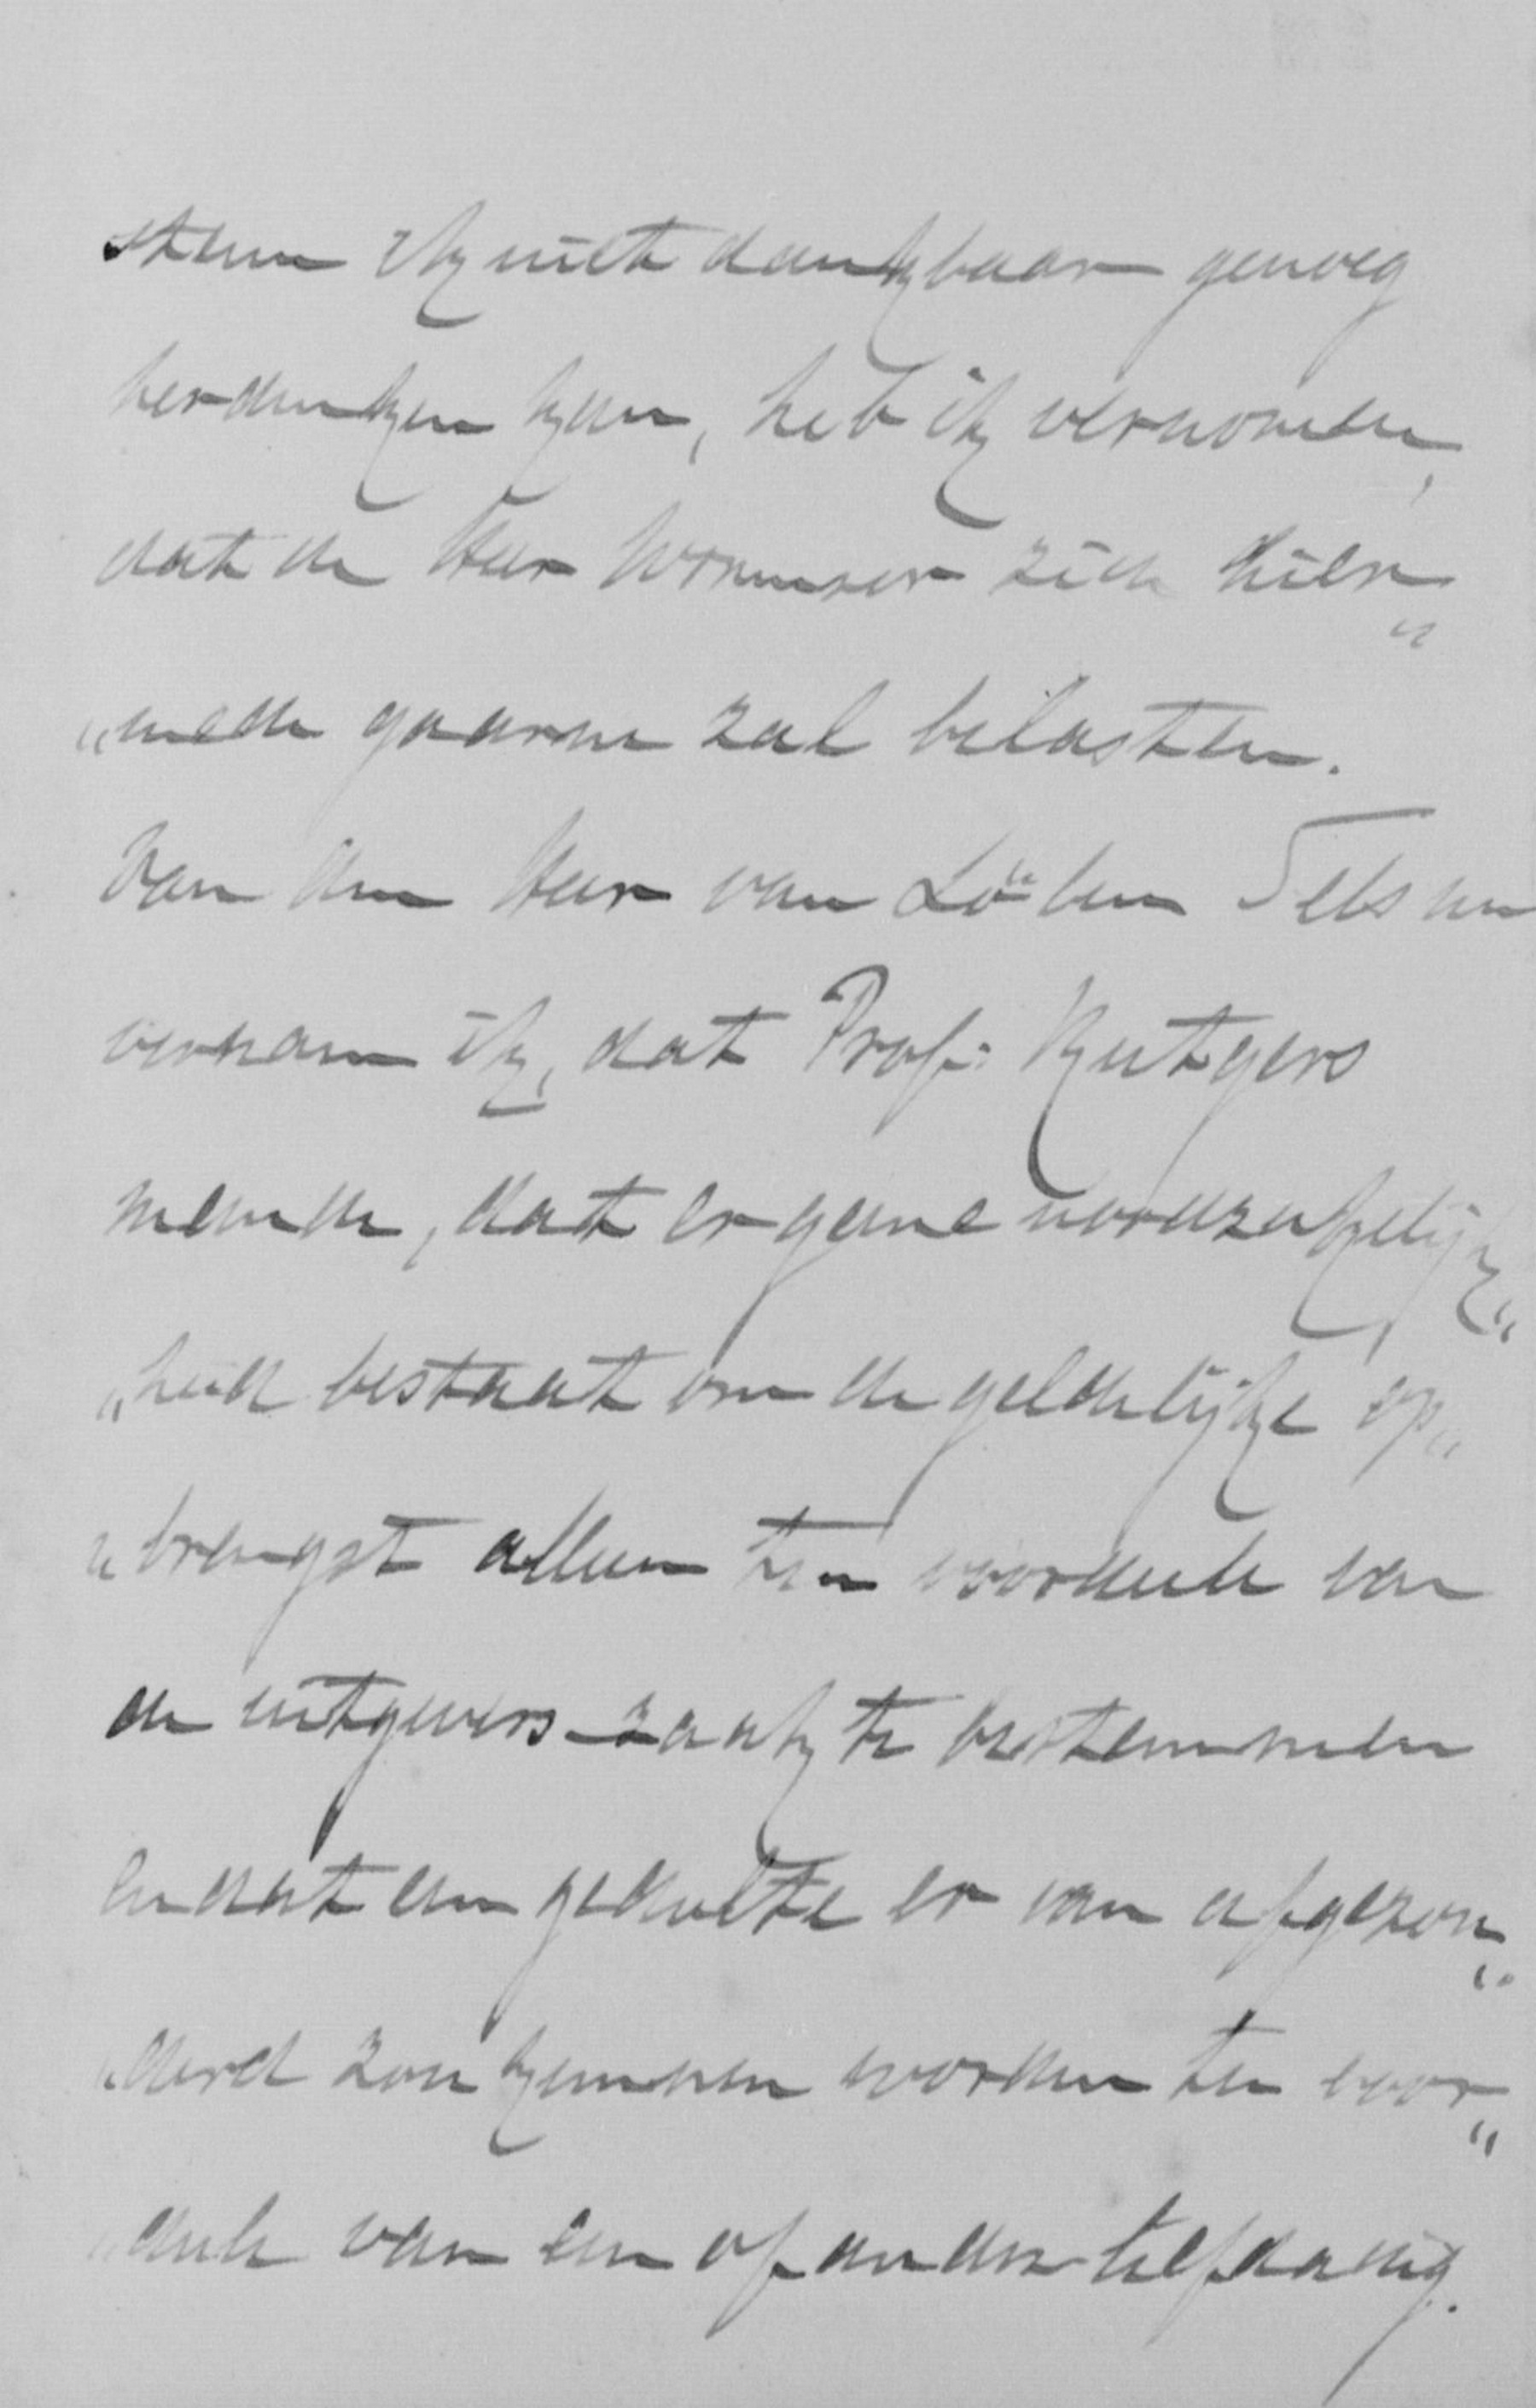 sten ik niet dankbaar genoeg
herdenken kan, heb ik vernomen,
dat de Heer Wormser zich hier„
„mede gaarne zal belasten.
Van den Heer van Löben Sels nu
vernam ik, dat Prof: Rutgers
meende, dat er geene noodzakelijk„
„heid bestaat om de geldelijke op„
„brengst alleen ten voordeele van
de uitgevers-zaak te bestemmen
en dat een gedeelte er van afgezon„
„derd zou kunnen worden ten voor„
„deele van een of ander liefdadig.